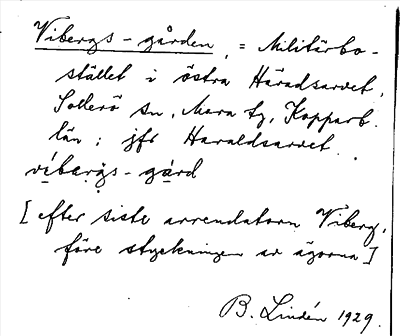 Vibergs-gården, = Militärbo-
stället i östra Häradsarvet,
Sollerö sn, Mora tg, Kopparb.
län; jfr Haraldsarvet.
víbærjs-gård
[efter siste arrendatorn Viberg,
före styckningen av ägorna]
B. Lindén 1929.